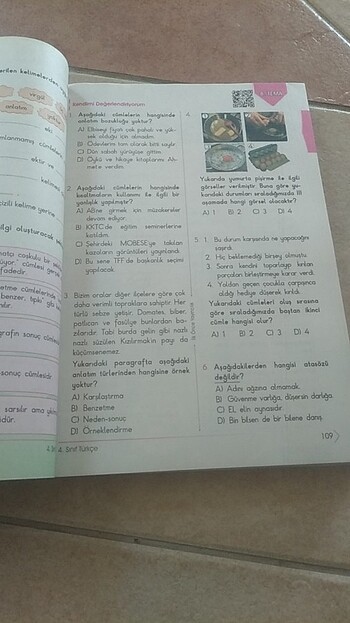 verilen kelimelerden
virgül
anlatım
Kendimi Değerlendiriyorum
1. Aşağıdaki cümlelerin hangisinde
anlatım bozukluğu yoktur?
A) Elbiseyi fiyatı çok pahalı ve yük-
sek olduğu için almadım.
B) Ödevlerim tam olarak bitti sayılır.
C) Dün sabah yürüyüşe gittim.
D) Öykü ve hikaye kitaplarını Ah-
mete verdim.
2. Aşağıdaki cümlelerin hangisinde
kısaltmaların kullanımı ile ilgili bir
yanlışlık yapılmıştır?
A) AB'ne girmek için müzakereler
devam ediyor.
B) KKTC'de eğitim seminerlerine
katıldım.
C) Şehirdeki MOBESE'ye takılan
kazaların görüntüleri yayınlandı.
D) Bu sene TFF'de başkanlık seçimi
yapılacak.
3. Bizim oralar diğer ilçelere göre çok
daha verimli topraklara sahiptir. Her
türlü sebze yetişir. Domates, biber,
patlıcan ve fasülye bunlardan ba-
zılarıdır. Tabi burda gelin gibi nazlı
nazlı süzülen Kızılırmak'ın payı da
küçümsenemez.
Yukarıdaki paragrafta aşağıdaki
anlatım türlerinden hangisine örnek
yoktur?
A) Karşılaştırma
B) Benzetme
C) Neden-sonuç
D) Örneklendirme
4. Sınıf Türkçe
TEMA
4.
1
2
3
4
Yukarıda yumurta pişirme ile ilgili
görseller verilmiştir. Buna göre yu-
karıdaki durumları sıraladığımızda III.
aşamada hangi görsel olacaktır?
A) 1 B) 2 C) 3 D) 4
5. 1. Bu durum karşısında ne yapacağını
şaşırdı.
2. Hiç beklemediği birşey olmuştu.
3. Sonra kendini toparlayıp kırılan
parçaları birleştirmeye karar verdi.
4. Yoldan geçen çocukla çarpışınca
aldığı hediye düşerek kırıldı.
Yukarıdaki cümleleri oluş sırasına
göre sıraladığımızda baştan ikinci
cümle hangisi olur?
A) 1 B) 2 C) 3 D) 4
6. Aşağıdakilerden hangisi atasözü
değildir?
A) Adını ağzına almamak.
B) Güvenme varlığa, düşersin darlığa.
C) El elin aynasıdır.
D) Bin bilsen de bir bilene danış.
109